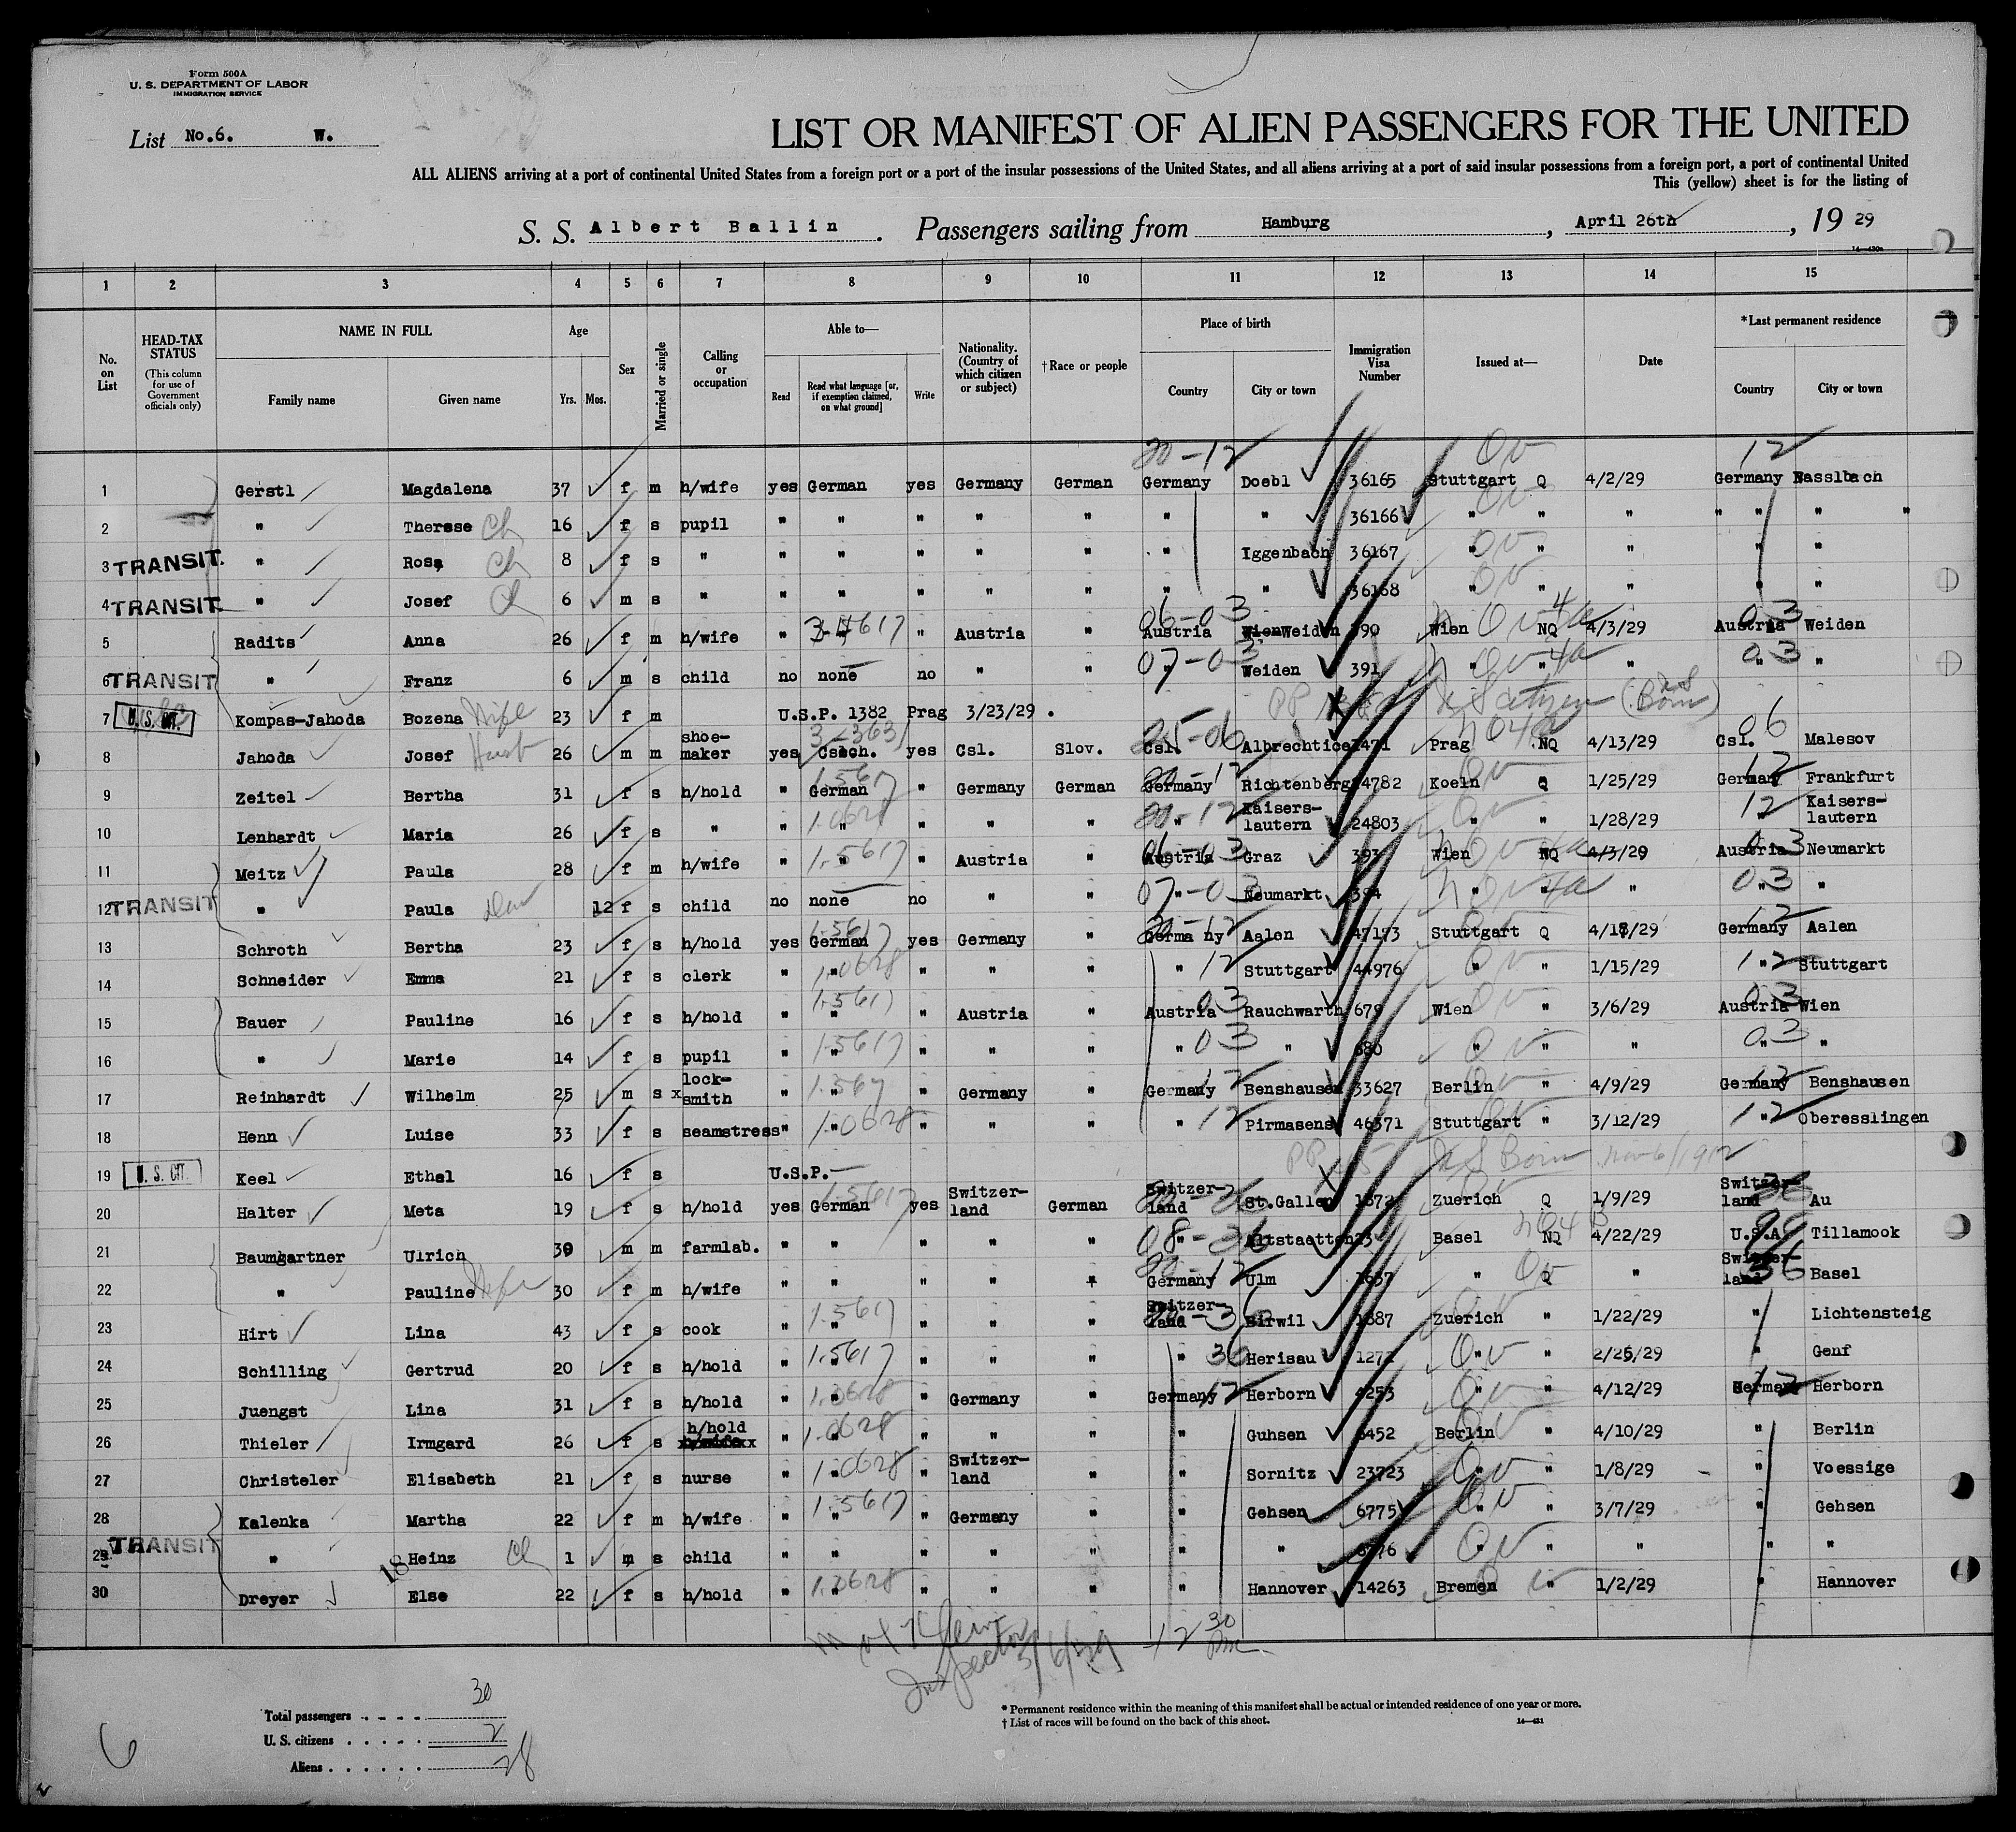 Form 500A
U. S. DEPARTMENT OF LABOR
IMMIGRATION SERVICE
List No.6. W.
LIST OR MANIFEST OF ALIEN PASSENGERS FOR THE UNITED
ALL ALIENS arriving at a port of continental United States from a foreign port or a port of the insular possessions of the United States, and all aliens arriving at a port of said insular possessions from a foreign port, a port of continental United
This (yellow) sheet is for the listing of
S. S. Albert Ballin. Passengers sailing from Hamburg, April 26th, 19 29
1 2 3 4 5 6 7 8 9 10 11 12 13 14 15
No. on List
HEAD-TAX STATUS (This column for use of Government officials only)
NAME IN FULL Family name Given name
Age Yrs. Mos.
Sex
Married or single
Calling or occupation
Able to— Read Read what language [or, if exemption claimed, on what ground] Write
Nationality. (Country of which citizen or subject)
†Race or people
Place of birth Country City or town
Immigration Visa Number
Issued at—
Date
*Last permanent residence Country City or town
20-12 12
1 Gerstl Magdalena 37 f m h/wife yes German yes Germany German Germany Doebl 36165 Stuttgart Q 4/2/29 Germany Nasslbach
2 " Therese Ch 16 f s pupil " " " " " " " 36166 " " " " " "
3 TRANSIT. " Rosa Ch 8 f s " " " " " " " Iggenbach 36167 " " " " "
4 TRANSIT " Josef Ch 6 m s " " " " " " " " 36168 " " " " "
5 Radits Anna 26 f m h/wife " " " Austria " Austria Weiden 390 Wien NQ 4/3/29 Austria Weiden
6 TRANSIT " Franz 6 m s child no none no " " " Weiden 391 " " " " "
7 U.S. CIT. Kompas-Jahoda Bozena Wife 23 f m U.S.P. 1382 Prag 3/23/29 . U S citizen (Born)
8 Jahoda Josef Husb 26 m m shoe-maker yes Csech. yes Csl. Slov. Csl. Albrechtice 1471 Prag NQ 4/13/29 Csl. Malesov
9 Zeitel Bertha 31 f s h/hold " German " Germany German Germany Richtenberg 24782 Koeln Q 1/25/29 Germany Frankfurt
10 Lenhardt Maria 26 f s " " " " " " " Kaisers-lautern 24803 " " 1/28/29 " Kaisers-lautern
11 Meitz Paula 28 f m h/wife " " " Austria " Austria Graz 393 Wien NQ 4/3/29 Austria Neumarkt
12 TRANSIT " Paula Dau 12 f s child no none no " " " Neumarkt 394 " " " " "
13 Schroth Bertha 23 f s h/hold yes German yes Germany " Germa ny Aalen 47173 Stuttgart Q 4/18/29 Germany Aalen
14 Schneider Emma 21 f s clerk " " " " " " Stuttgart 44976 " " 1/15/29 " Stuttgart
15 Bauer Pauline 16 f s h/hold " " " Austria " Austria Rauchwarth 679 Wien " 3/6/29 Austria Wien
16 " Marie 14 f s pupil " " " " " " " 680 " " " " "
17 Reinhardt Wilhelm 25 m s x lock-smith " " " Germany " Germany Benshausen 33627 Berlin " 4/9/29 Germany Benshausen
18 Henn Luise 33 f s seamstress " " " " " " Pirmasens 46371 Stuttgart " 3/12/29 " Oberesslingen
19 U.S. CIT. Keel Ethel 16 f s U.S.P.— U S Born Nov 6/1912
20 Halter Meta 19 f s h/hold yes German yes Switzer-land German Switzer-land St.Gallen 1672 Zuerich Q 1/9/29 Switzer-land Au
21 Baumgartner Ulrich 39 m m farmlab. " " " " " " Altstaetten 23 Basel NQ 4/22/29 U.S.A. Tillamook
22 " Pauline Wife 30 f m h/wife " " " " " Germany Ulm 1637 " Q " Switzer-land Basel
23 Hirt Lina 43 f s cook " " " " " Switzer-land Birwil 1687 Zuerich " 1/22/29 " Lichtensteig
24 Schilling Gertrud 20 f s h/hold " " " " " " Herisau 1272 " " 2/26/29 " Genf
25 Juengst Lina 31 f s h/hold " " " Germany " Germany Herborn 4253 " " 4/12/29 Germany Herborn
26 Thieler Irmgard 26 f s h/hold " " " " " " Guhsen 6452 Berlin " 4/10/29 " Berlin
27 Christeler Elisabeth 21 f s nurse " " " Switzer-land " " Sornitz 23723 " " 1/8/29 " Voessige
28 Kalenka Martha 22 f m h/wife " " " Germany " " Gehsen 6775 " " 3/7/29 " Gehsen
29 TRANSIT " Heinz Ch 1 m s child " " " " " " " 6776 " " " " "
30 Dreyer Else 22 f s h/hold " " " " " " Hannover 14263 Bremen " 1/2/29 " Hannover
18
Inspector 5/6/29 12 30 Pm
Total passengers 30
U. S. citizens 2
Aliens 28
* Permanent residence within the meaning of this manifest shall be actual or intended residence of one year or more.
† List of races will be found on the back of this sheet.
6